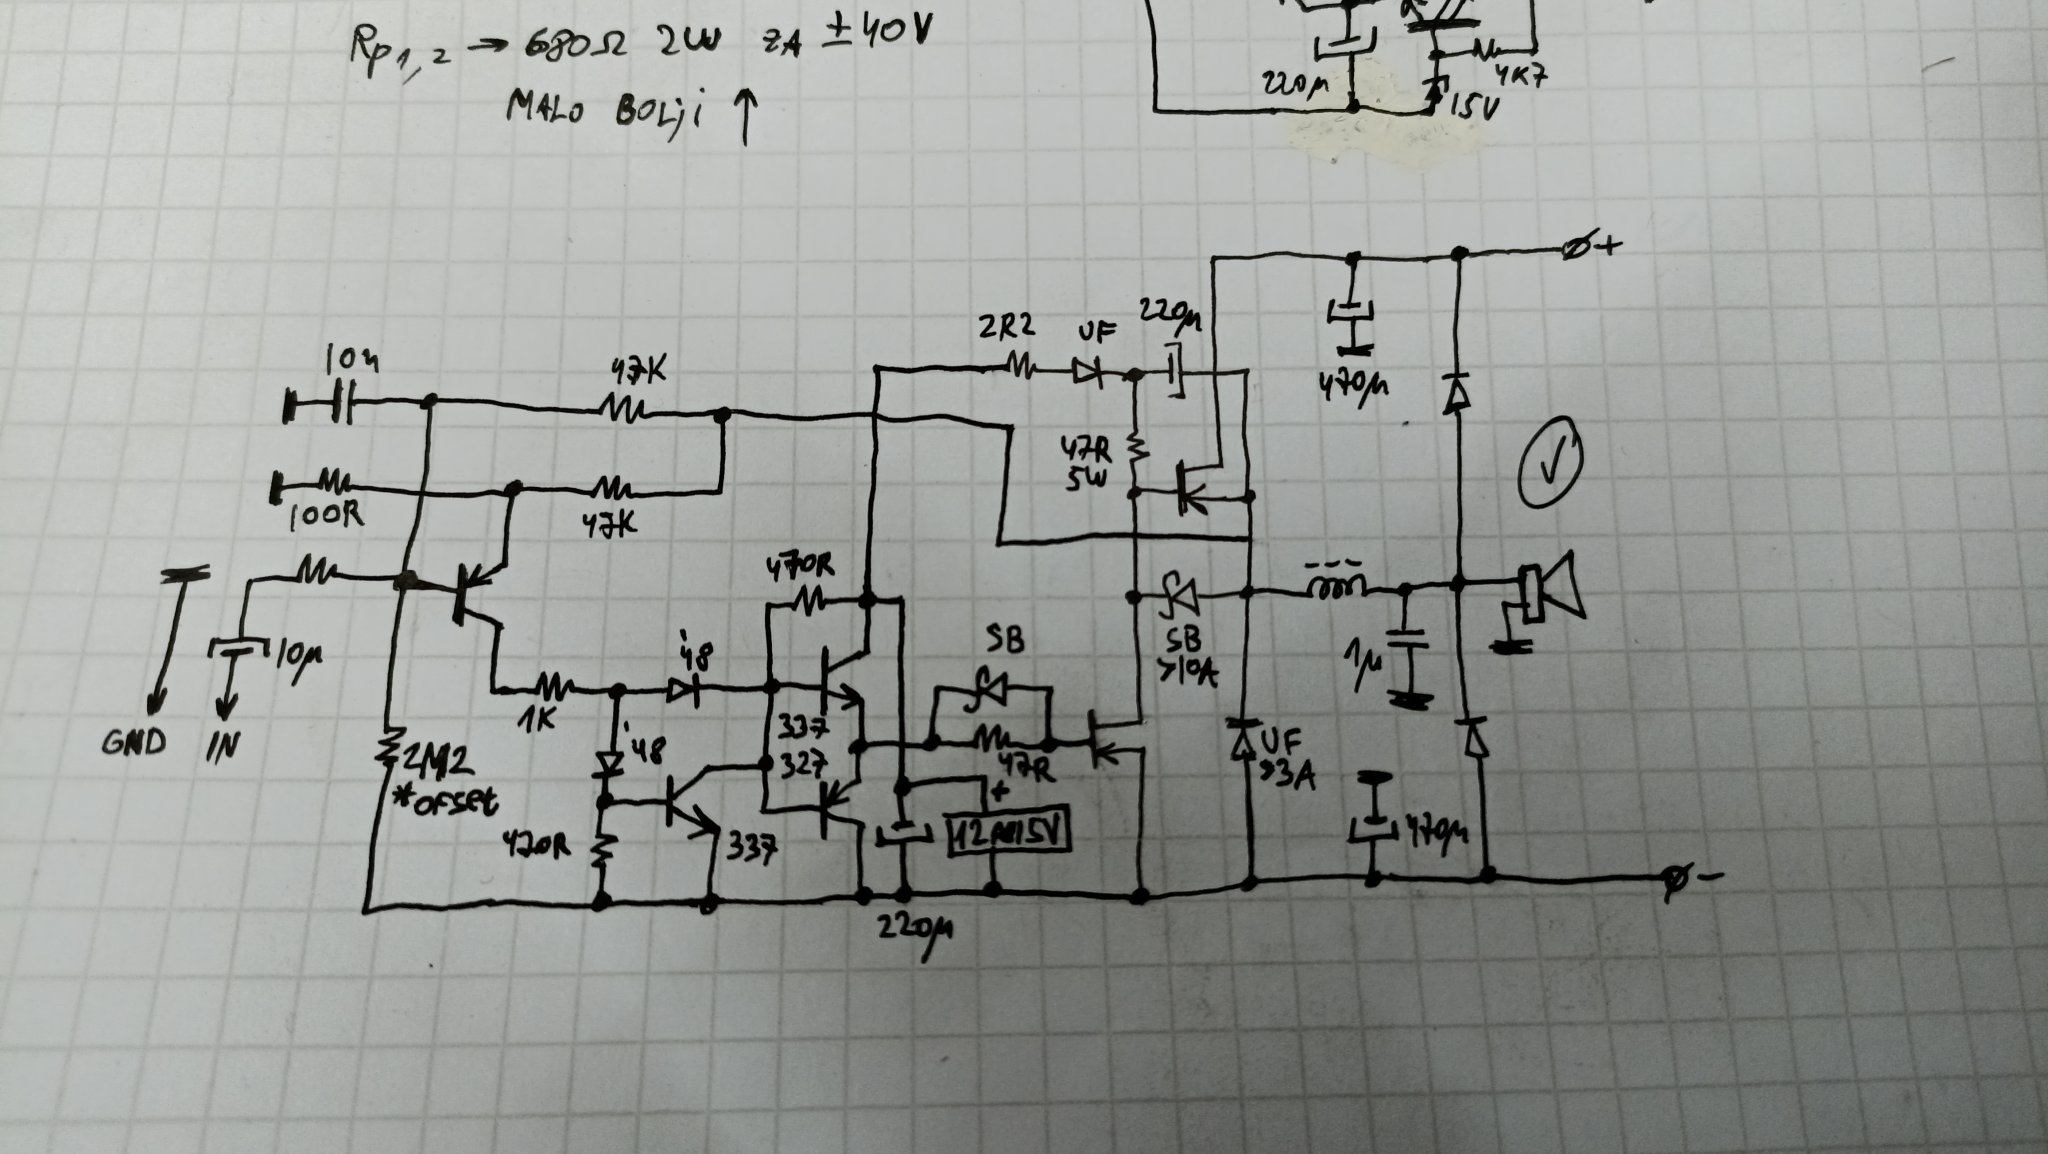 Rp1,2 → 680Ω 2W ZA ±40V
MALO BOLji ↑
220µ
4K7
15V
+
2R2
UF
220µ
10n
47K
470µ
47R
5W
100R
47K
470R
10µ
'48
SB
SB
>10A
1µ
1K
337
GND
IN
'48
327
47R
UF
>3A
2M2
*OFSET
+
470R
337
470µ
-
220µ